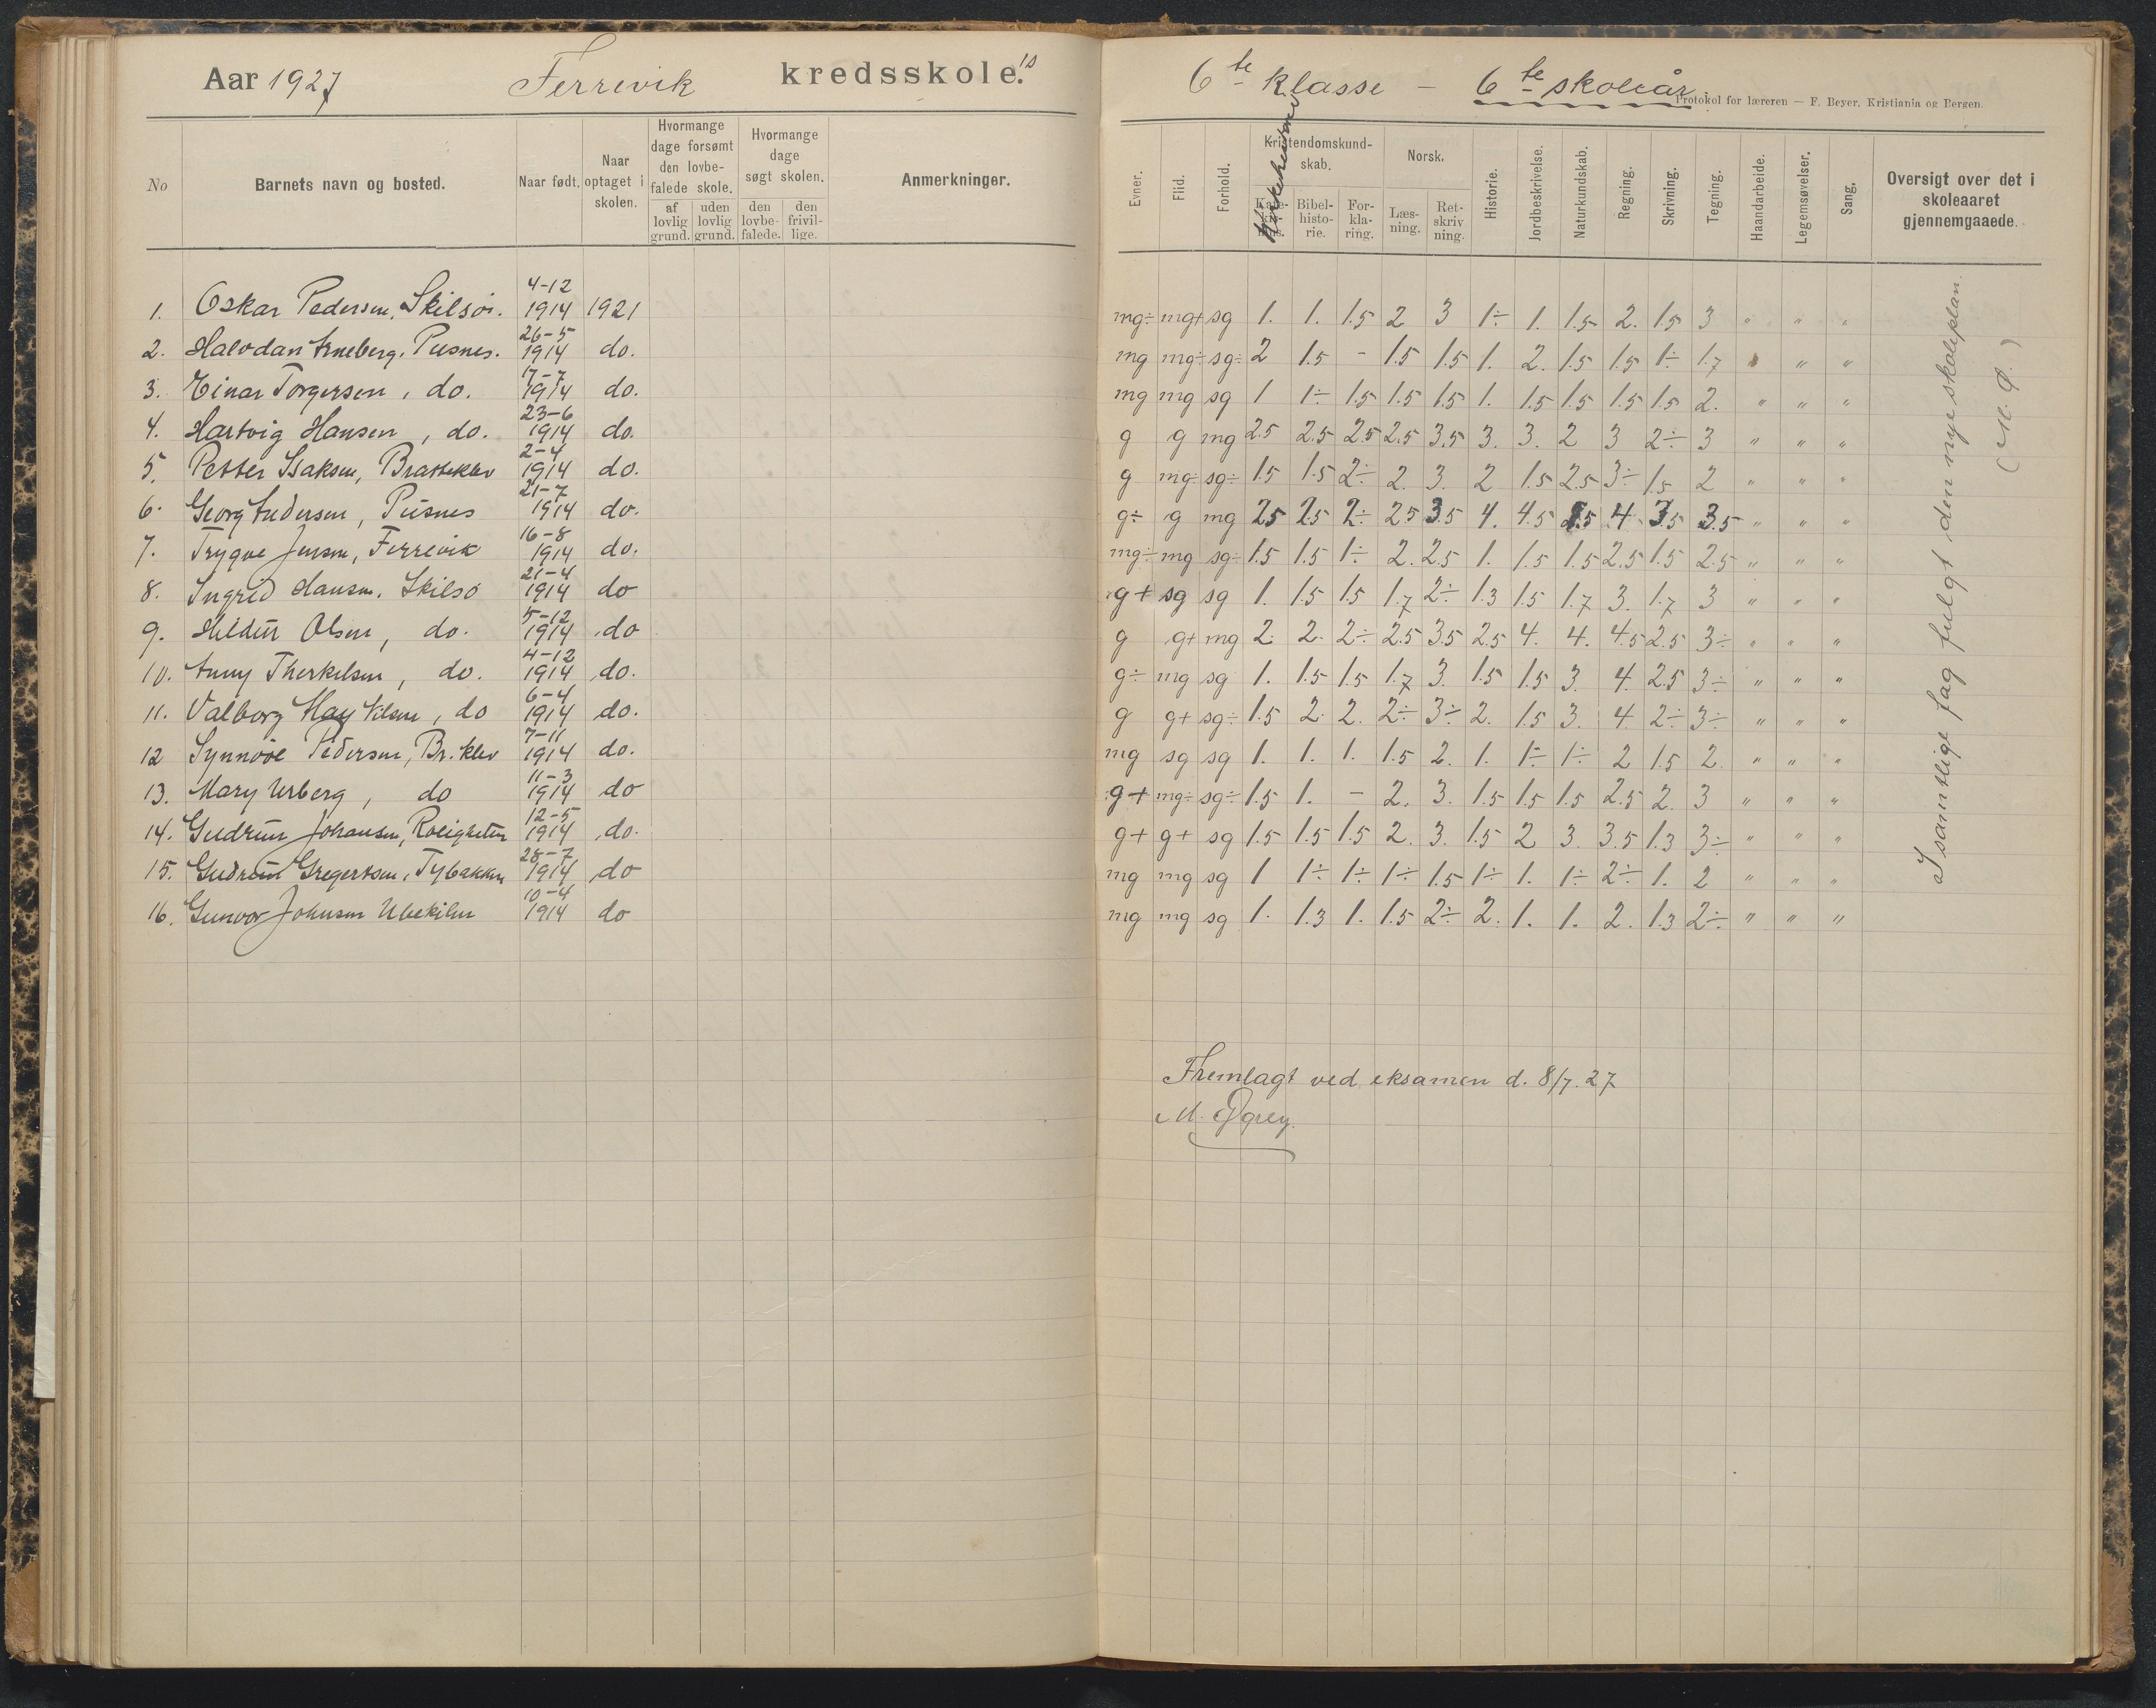 Aar 1927 Ferrevik kredsskole.s
No Barnets navn og bosted. Naar født. Naar optaget i skolen. Hvormange dage forsømt den lovbefalede skole. af lovlig grund. uden lovlig grund. Hvormange dage søgt skolen. den lovbefalede. den frivillige. Anmerkninger.
4-12
1. Oskar Pedersen, Skilsøi. 1914 1921
26-5
2. Halvdan Arneberg, Pusnes. 1914 do.
17-7
3. Einar Torgersen, do. 1914 do.
23-6
4. Hartvig Hansen, do. 1914 do.
2-4
5. Petter Isaksen, Bratteklev 1914 do.
21-7
6. Georg Andersen, Pusnes 1914 do.
16-8
7. Trygve Jensen, Ferrevik 1914 do.
21-4
8. Ingrid Hansen, Skilsø 1914 do
5-12
9. Hildur Olsen, do. 1914 do
4-12
10. Anny Therkelsen, do. 1914 do.
6-4
11. Valborg May Nilsen, do 1914 do.
7-11
12 Synnøve Pedersen, Br.klev 1914 do.
11-3
13. Mary Urberg, do 1914 do
12-5
14. Gudrun Johansen, Roligheten 1914 do.
28-7
15. Gudrun Gregertsen, Tybakken 1914 do
10-4
16. Gunvor Johnsen Ubekilen 1914 do
6te klasse – 6te skoleår.
Protokol for læreren — F. Beyer, Kristiania og Bergen.
Evner. Flid. Forhold. Kristendomskundskab. Katekismus. Bibelhistorie. Forklaring. Norsk. Læsning. Retskrivning. Historie. Jordbeskrivelse. Naturkundskab. Regning. Skrivning. Tegning. Haandarbeide. Legemsøvelser. Sang. Oversigt over det i skoleaaret gjennemgaaede.
mg÷ mg+ sg 1. 1. 1.5 2 3 1÷ 1. 1.5 2. 1.5 3 " " "
mg mg÷ sg÷ 2 1.5 - 1.5 1.5 1. 2. 1.5 1.5 1÷ 1.7 " " "
mg mg sg 1 1÷ 1.5 1.5 1.5 1. 1.5 1.5 1.5 1.5 2. " " "
g g mg 2.5 2.5 2.5 2.5 3.5 3. 3. 2 3 2÷ 3 " " "
g mg÷ sg÷ 1.5 1.5 2÷ 2. 3. 2 1.5 2.5 3÷ 1.5 2 " " "
g÷ g mg 2.5 2.5 2÷ 2.5 3.5 4. 4.5 4 3.5 3.5 " " "
mg÷ mg sg÷ 1.5 1.5 1÷ 2. 2.5 1. 1.5 1.5 2.5 1.5 2.5 " " "
g+ sg sg 1. 1.5 1.5 1.7 2÷ 1.3 1.5 1.7 3. 1.7 3 " " "
g g+ mg 2. 2. 2÷ 2.5 3.5 2.5 4. 4. 4.5 2.5 3÷ " " "
g÷ mg sg 1. 1.5 1.5 1.7 3. 1.5 1.5 3. 4. 2.5 3÷ " " "
g g+ sg÷ 1.5 2. 2. 2÷ 3÷ 2. 1.5 3. 4. 2÷ 3÷ " " "
mg sg sg 1. 1. 1. 1.5 2. 1. 1÷ 1÷ 2 1.5 2. " " "
g+ mg÷ sg÷ 1.5 1. - 2. 3. 1.5 1.5 1.5 2.5 2. 3 " " "
g+ g+ sg 1.5 1.5 1.5 2. 3. 1.5 2 3. 3.5 1.3 3÷ " " "
mg mg sg 1 1÷ 1÷ 1÷ 1.5 1÷ 1. 1÷ 2÷ 1. 2 " " "
mg mg sg 1. 1.3 1. 1.5 2÷ 2. 1. 1. 2. 1.3 2÷ " " "
I samtlige fag fulgt den nye skoleplan.
(M. Ø.)
Fremlagt ved eksamen d. 8/7. 27
M. Øgrey.